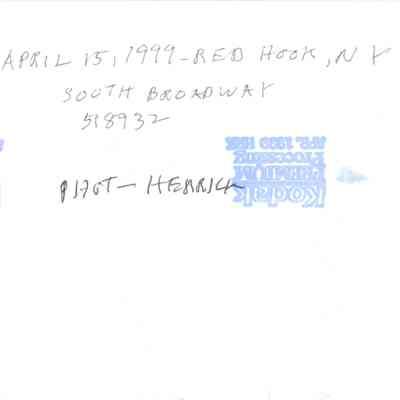 APRIL 15, 1999 - RED HOOK, NY
SOUTH BROADWAY
518932
PIZOT - HERRICK
Kodak
PREMIUM
Processing